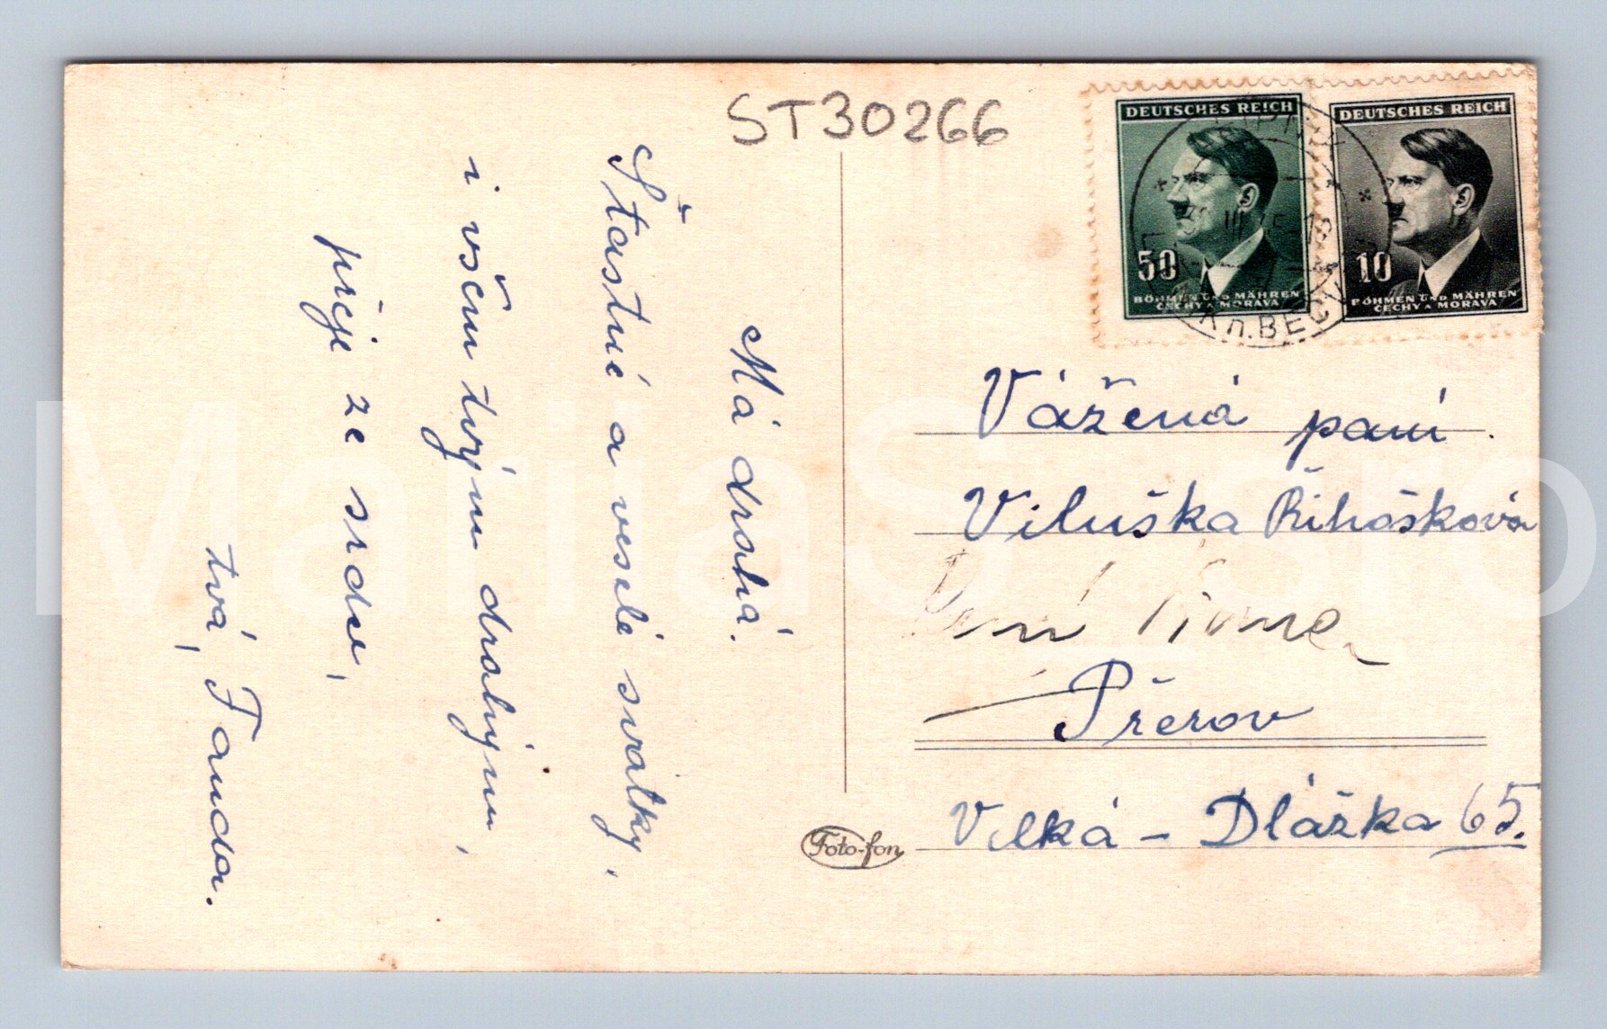 ST30266
Má drahá.
Šťastné a veselé svátky,
i všem tvým drahým,
přeje ze srdce,
tvá, Fanda.
DEUTSCHES REICH
50
BÖHMEN UND MÄHREN
ČECHY A MORAVA
DEUTSCHES REICH
10
BÖHMEN UND MÄHREN
ČECHY A MORAVA
III 45 18
Kn. BEČV
Vážená paní
Viluška Řihošková
Přerov
Velká – Dlážka 65.
Foto-fon